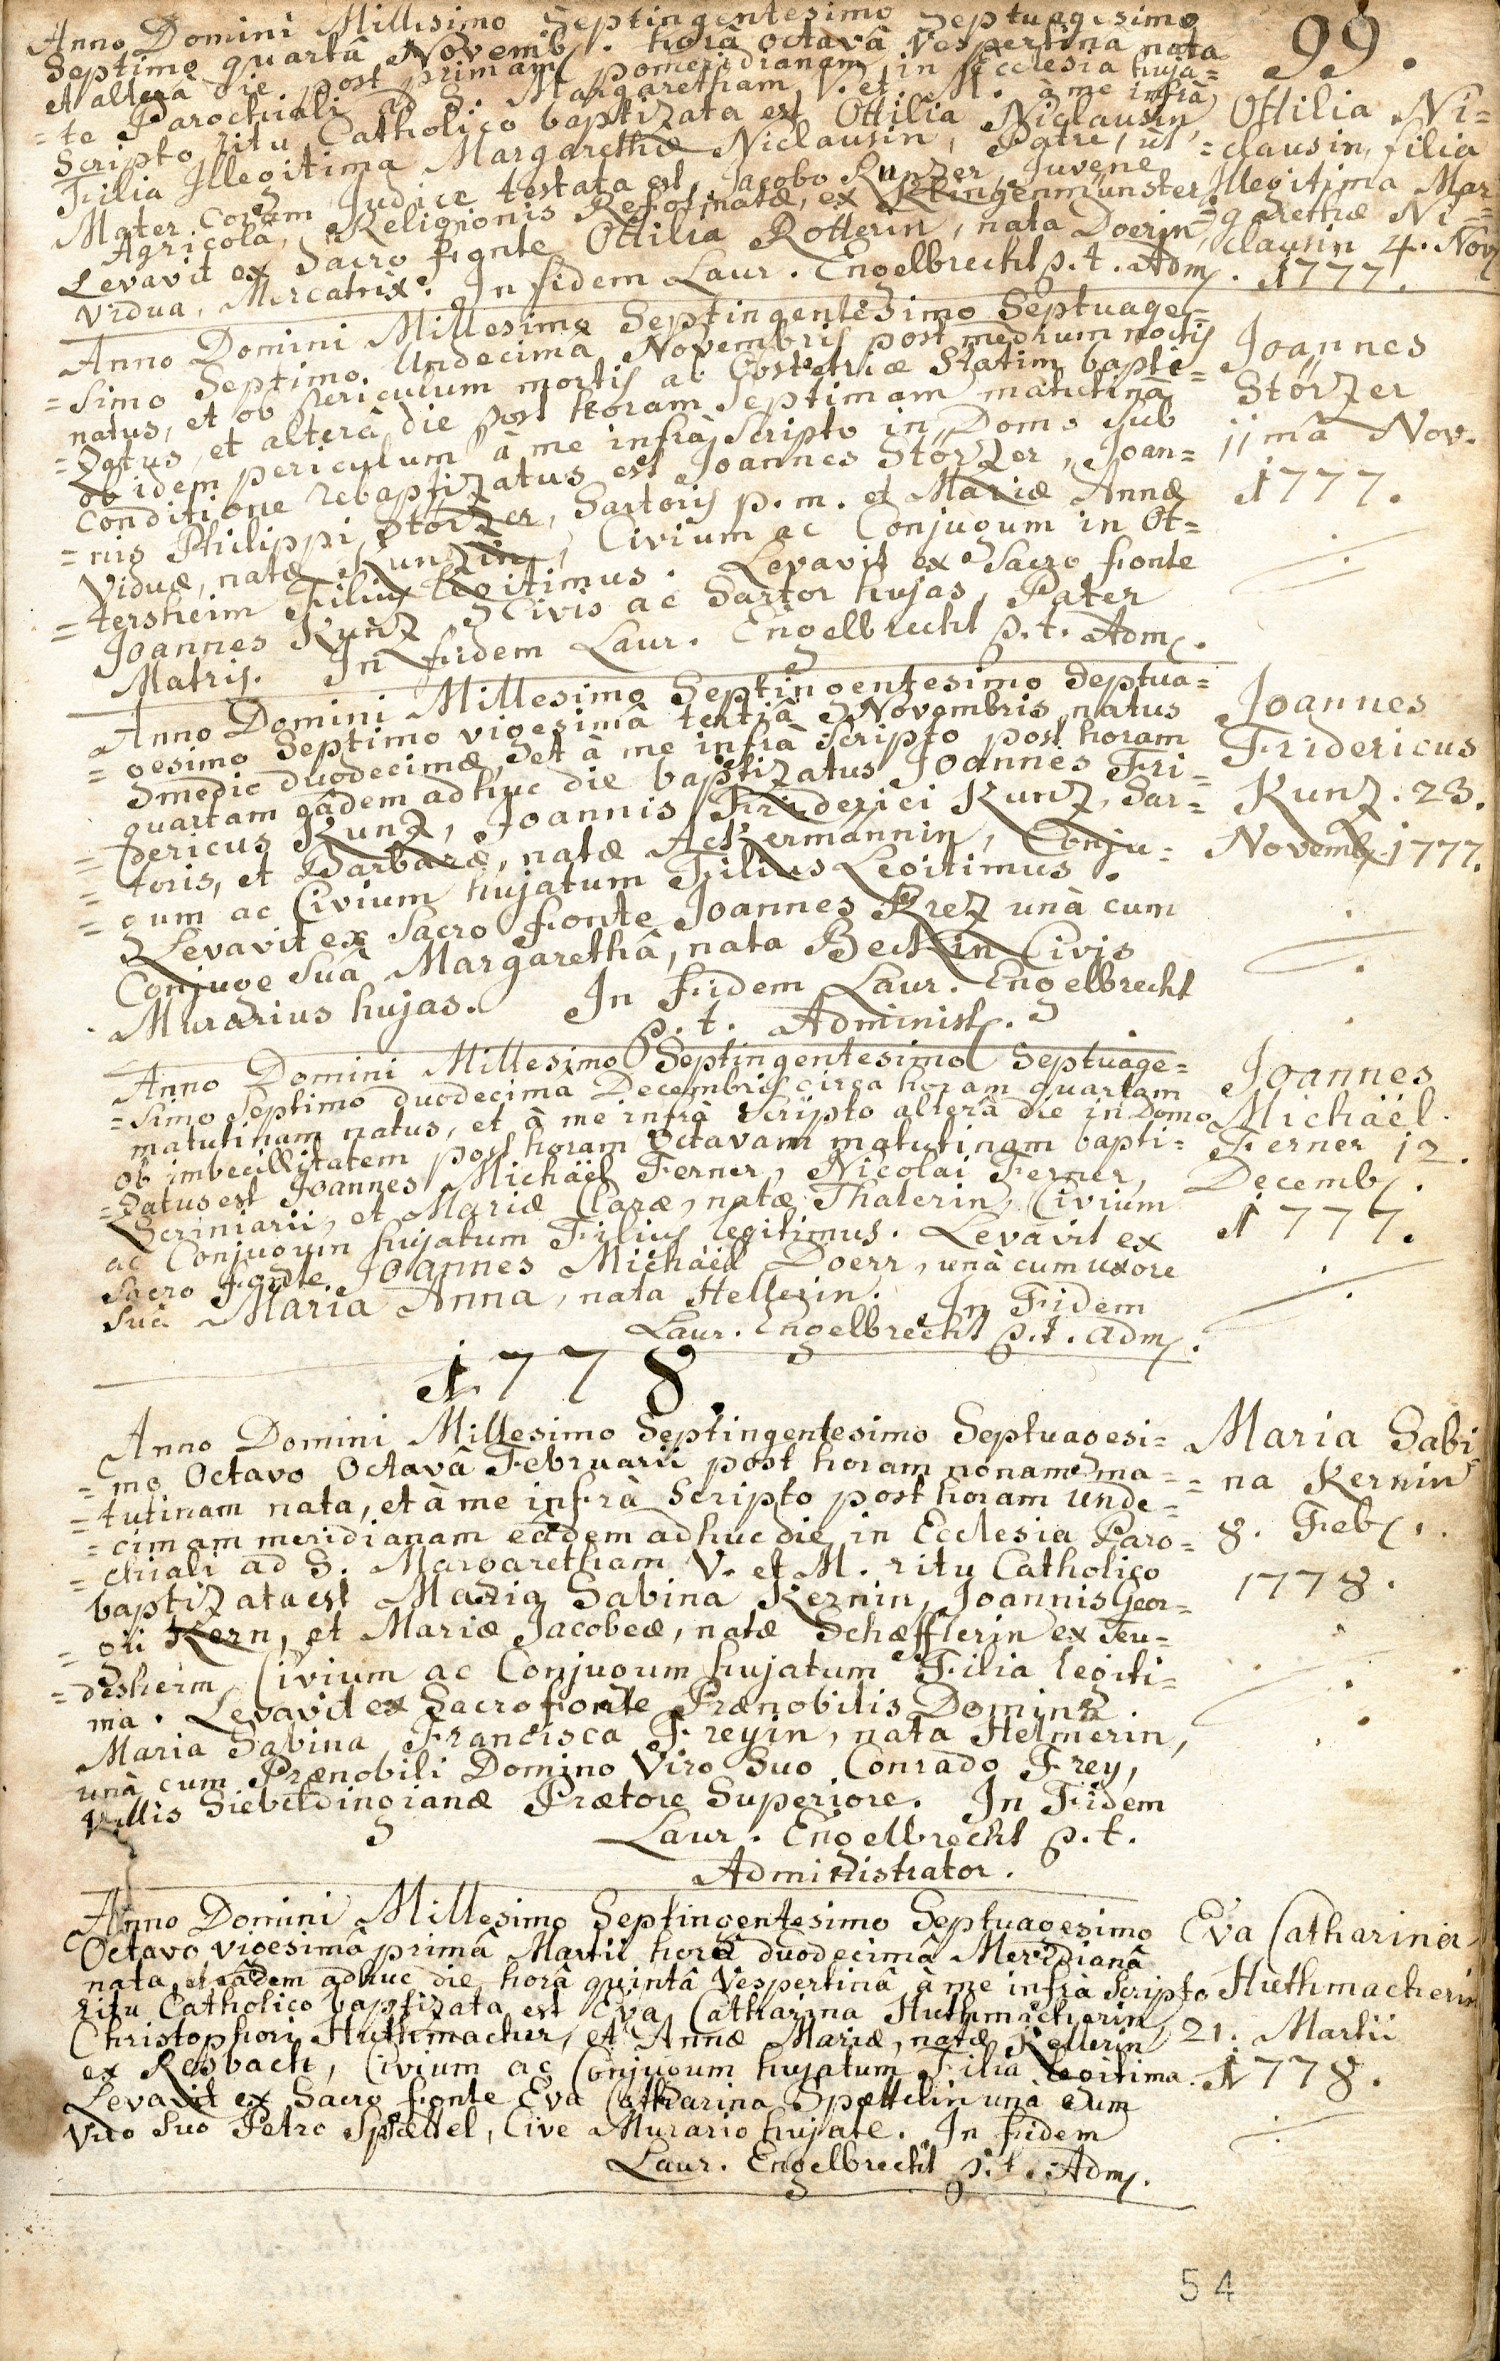 99.
Anno Domini Millesimo Septingentesimo Septuagesimo
Septimo quartâ Novemb. horâ octavâ Vespertinâ nata
et alterâ die post primam pomeridianam in Ecclesia huja=
=te Parochiali ad S. Margaretham V. et M. à me infrà
Scripto ritu Catholico baptizata est Ottilia Niclausin,
Filia Illegitima Margarethæ Niclausin, Patre, ùt
Mater Coram Judice testata est, Jacobo Runzer, Juvene
Agricolâ, Religionis Reformatæ, ex Klingenmünster
Levavit ex Sacro Fonte Ottilia Rotterin, nata Doerin,
Vidua, Mercatrix. In fidem Laur. Engelbrecht p. t. Adm.
Ottilia Ni=
=clausin, filia
Illegitima Mar=
=garethæ Ni=
=clausin 4. Nov
1777.
Anno Domini Millesimo Septingentesimo Septuage=
=simo Septimo Undecimâ Novembris post medium noctis
natus, et ob periculum mortis ab Obstetrice Statim bapti=
=zatus, et alterâ die post horam Septimam matutinâ
ob idem periculum à me infrà Scripto in Domo sub
Conditione rebaptizatus est Joannes Störzer, Joan=
=nis Philippi Störzer, Sartoris p. m. et Mariæ Annæ
Viduæ, natæ Kunzin, Civium ac Conjugum in Ot=
=tersheim Filius legitimus. Levavit ex Sacro fonte
Joannes Kunz Civis ac Sartor hujas, Pater
Matris. In fidem Laur. Engelbrecht p. t. Adm.
Joannes
Störzer
11mâ Nov.
1777.
Anno Domini Millesimo Septingentesimo Septua=
=gesimo Septimo vigesimâ tertiâ Novembris natus
medio duodecimæ, et à me infrà Scripto post horam
quartam eâdem adhuc die baptizatus Joannes Fri=
=dericus Kunz, Joannis Friderici Kunz, Sar=
=toris, et Barbaræ, natæ Ackermannin, Conju=
=gum ac Civium hujatum Filius Legitimus.
Levavit ex Sacro fonte Joannes Krez unà cum
Conjuge Suâ Margarethâ, nata Beckin Civis
Murarius hujas. In Fidem Laur. Engelbrecht
p. t. Administ.
Joannes
Fridericus
Kunz. 23.
Novemb. 1777.
Anno Domini Millesimo Septingentesimo Septuage=
=simo Septimo duodecima Decembris circa horam quartam
matutinam natus, et à me infrà Scripto alterâ die in Domo
ob imbecillitatem post horam Octavam matutinam bapti=
=zatus est Joannes Michaël Ferner, Nicolai Ferner,
Scriniarii, et Mariæ Claræ, natæ Thalerin, Civium
ac Conjugum hujatum Filius legitimus. Levavit ex
Sacro Fonte Joannes Michaël Doerr, unà cum uxore
Suâ Maria Anna, nata Hellerin. In Fidem
Laur. Engelbrecht p. t. adm.
Joannes
Michaël
Ferner 12.
Decemb.
1777.
1778
Anno Domini Millesimo Septingentesimo Septuagesi=
=mo Octavo Octavâ Februarii post horam nonam ma=
=tutinam nata, et à me infrà Scripto post horam Unde=
=cimam meridianam eâdem adhuc die in Ecclesia Paro=
=chiali ad S. Margaretham V. et M. ritu Catholico
baptizata est Maria Sabina Kernin, Joannis Geor=
=gii Kern, et Mariæ Jacobeæ, natæ Schæfflerin ex Teu=
=desheim Civium ac Conjugum hujatum Filia legiti=
ma. Levavit ex Sacro fonte Prænobilis Domina
Maria Sabina Francisca Freyin, nata Helmerin,
unà cum Prænobili Domino Viro Suo Conrado Frey,
Villis Siebeldingianæ Prætore Superiore. In Fidem
Laur. Engelbrecht p. t.
Administrator.
Maria Sabi
=na Kernin
8. Feb.
1778.
Anno Domini Millesimo Septingentesimo Septuagesimo
Octavo vigesimâ primâ Martii horâ duodecimâ Meridianâ
nata, et eâdem adhuc die horâ quintâ Vespertinâ à me infrà Scripto
ritu Catholico baptizata est Eva Catharina Huthmacherin,
Christophori Huthmacher, et Annæ Mariæ, natæ Kellerin
ex Rosbach, Civium ac Conjugum hujatum Filia legitima.
Levavit ex Sacro fonte Eva Catharina Spættelin unà cum
Viro Suo Petro Spættel, Cive Murario hujate. In fidem
Laur. Engelbrecht p. t. Adm.
Eva Catharina
Huthmacherin
21. Martii
1778.
54